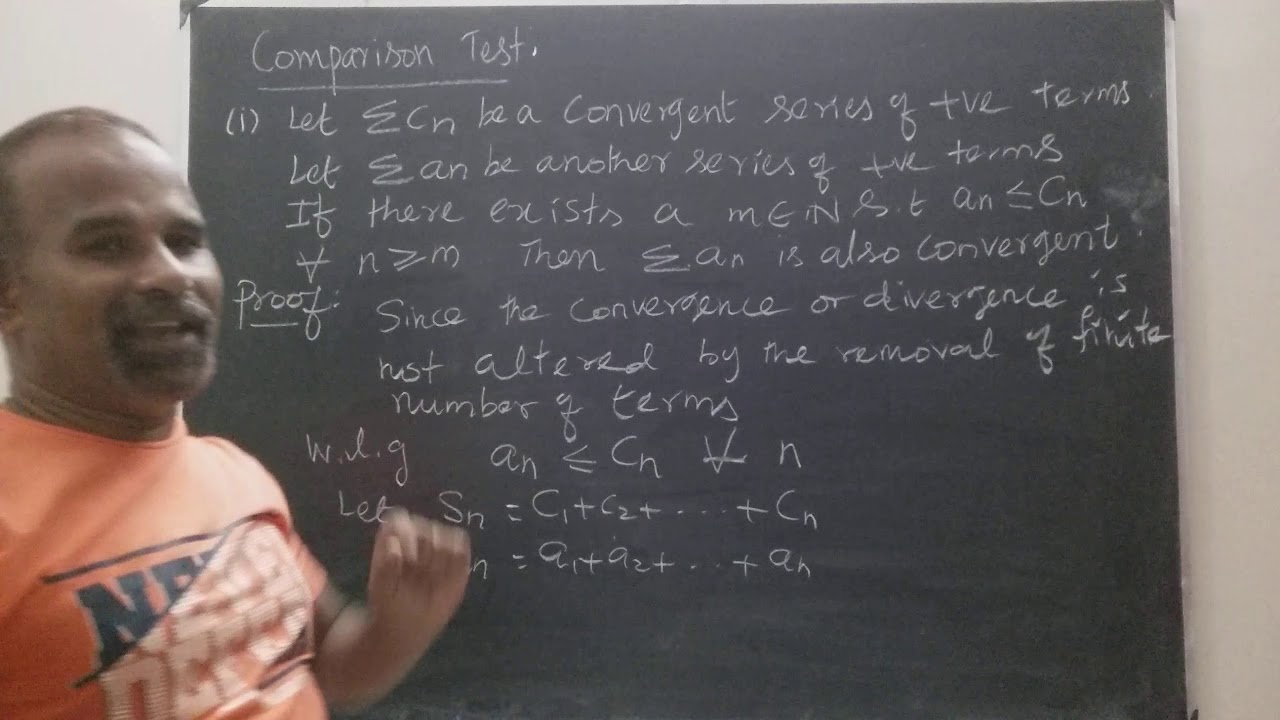 Comparison Test.
(i) Let ΣCn be a Convergent series of +ve terms.
Let Σan be another series of +ve terms
If there exists a m∈ℕ s.t an ≤ Cn
∀ n ≥ m Then Σan is also convergent.
Proof: Since the convergence or divergence is
not altered by the removal of finite
number of terms
w.l.g an ≤ Cn ∀ n
Let Sn = C1+C2+ .... + Cn
n = a1+a2+ ... + an